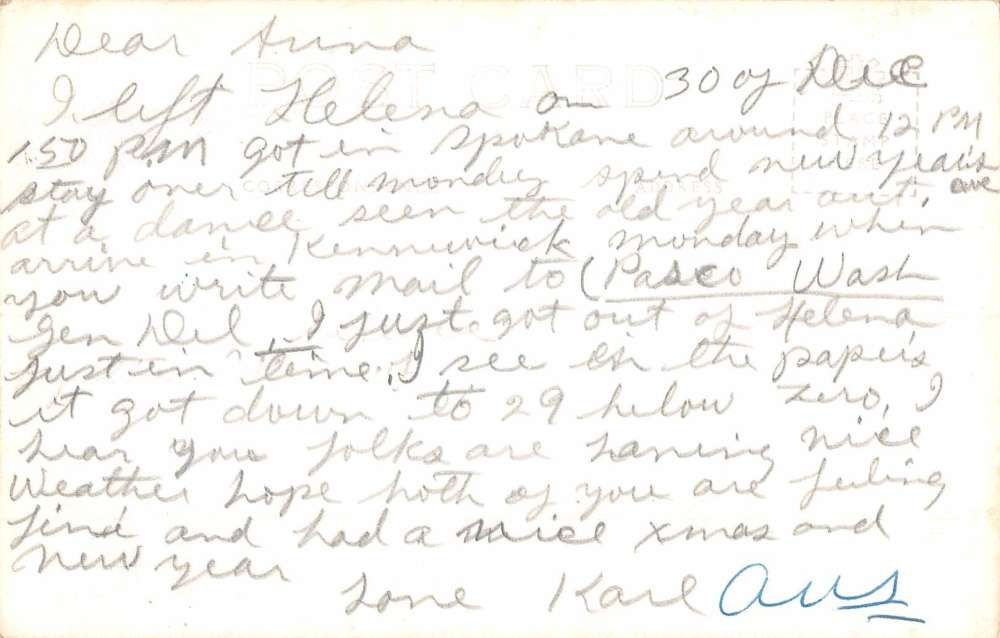 Dear Anna
I left Helena on 30 of Dec
150 P.M got in Spokane around 12 PM
stay over till monday spend new years eve
at a dance seen the old year out,
arrive in Kennewick monday when
you write mail to (Pasco Wash
Gen Del, I just got out of Helena
just in time. I see in the papers
it got down to 29 below zero, I
hear you folks are having nice
weather hope both of you are feeling
fine and had a nice xmas and
new year
Love Karl ans
POST CARD
PLACE
STAMP
HERE
ADDRESS